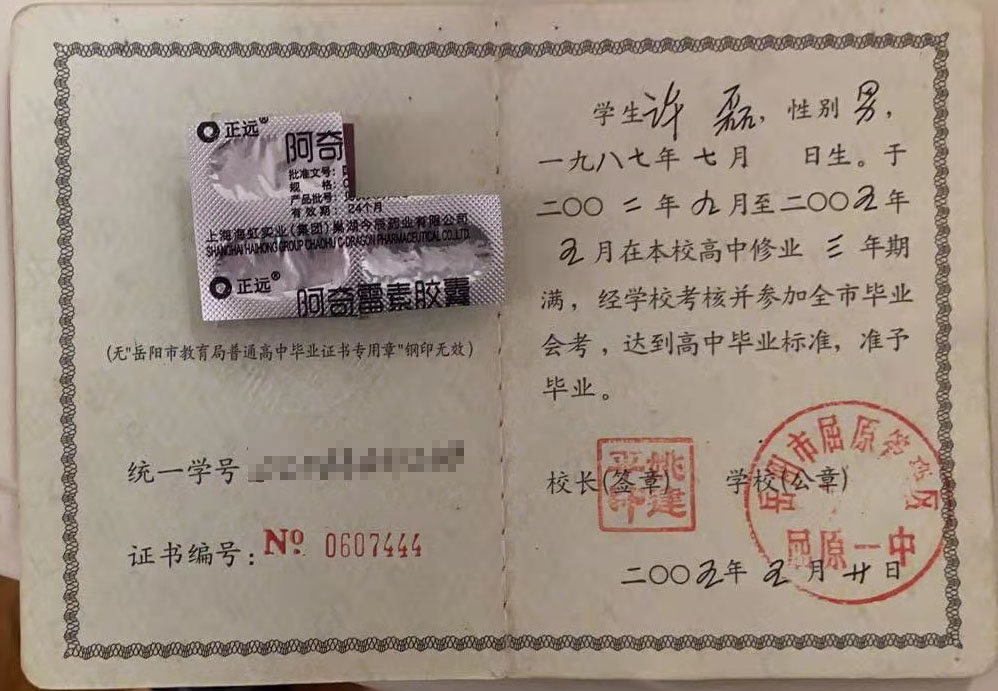 正远®
阿奇
批准文号:
规 格:
产品批号:
有效期: 24个月
上海海虹实业(集团)巢湖今辰药业有限公司
SHANGHAI HAIHONG GROUP CHAOHU C-DRAGON PHARMACEUTICAL CO.,LTD.
正远®
阿奇霉素胶囊
(无"岳阳市教育局普通高中毕业证书专用章"钢印无效)
统一学号
证书编号: № 0607444
学生许磊,性别男,
一九八七年七月 日生。于
二〇〇二年九月至二〇〇五年
五月在本校高中修业三年期
满,经学校考核并参加全市毕业
会考,达到高中毕业标准,准予
毕业。
校长(签章) 学校(公章)
姚建
印
市屈原
区
屈原一中
二〇〇五年五月廿日